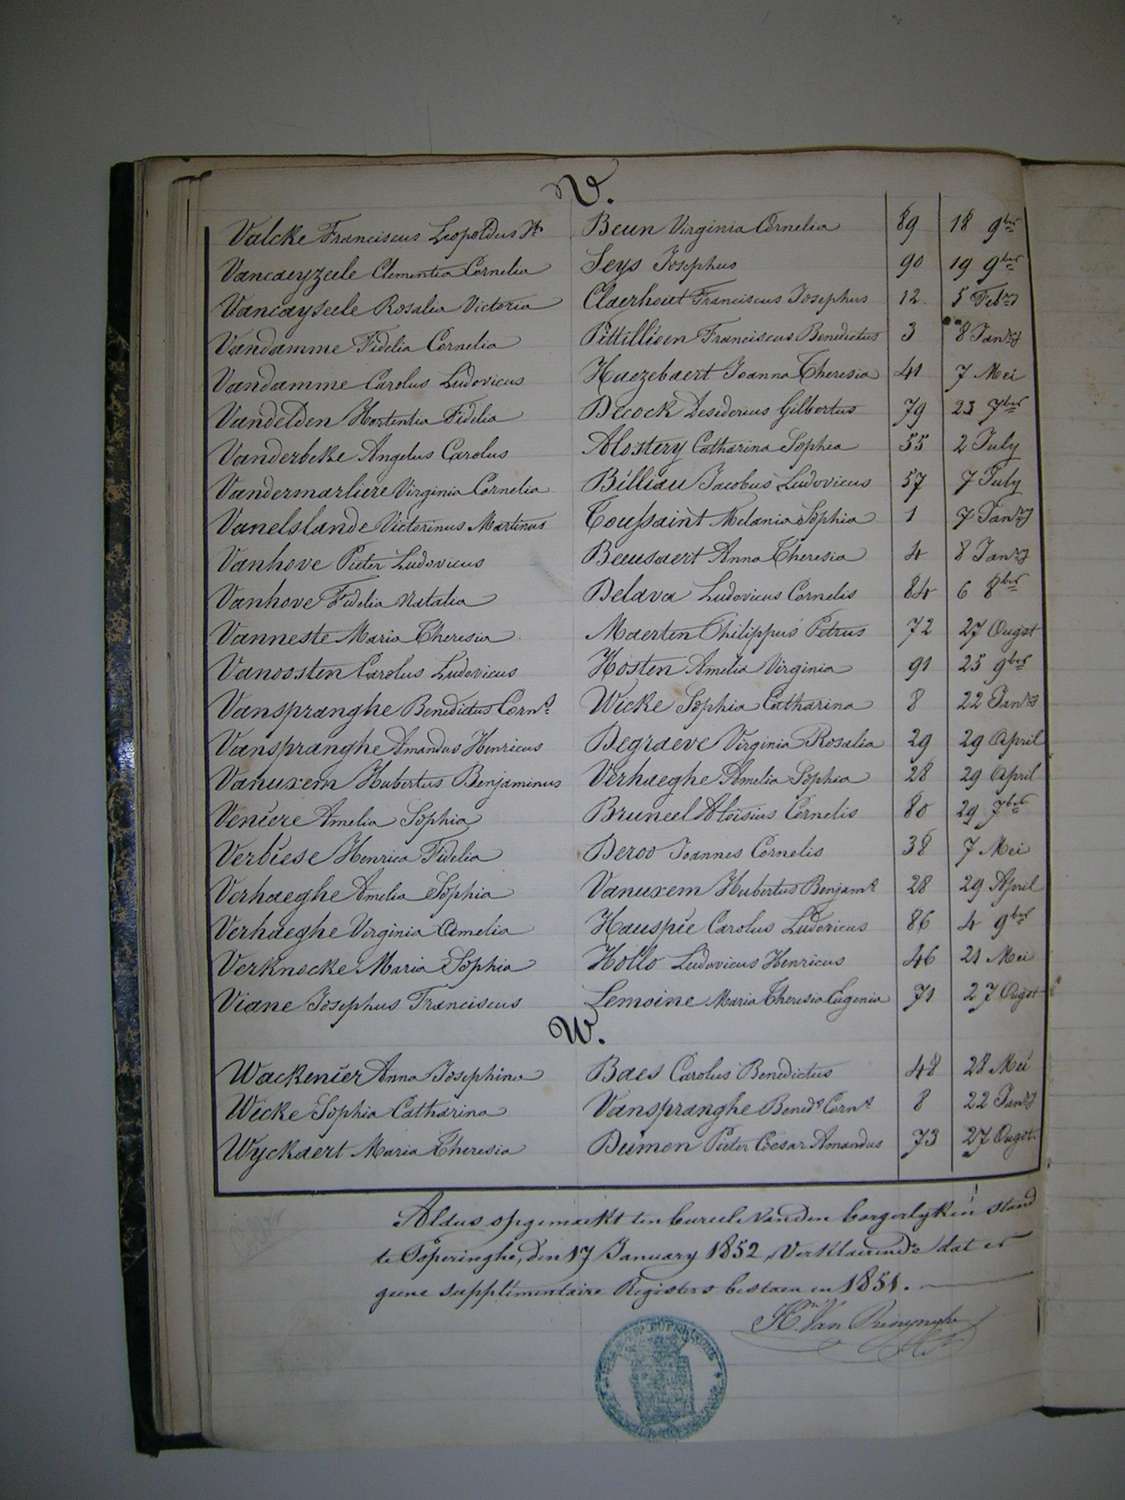 V.
Valcke Franciscus Leopoldus Jh Beun Virginia Cornelia 89 18 9ber
Vancaeyzeele Clementia Cornelia Seys Josephus 90 19 9ber
Vancayseele Rosalia Victoria Claerhout Franciscus Josephus 12 5 Febry
Vandamme Fidelia Cornelia Pittillioen Franciscus Benedictus 3 8 Janry
Vandamme Carolus Ludovicus Haezebaert Joanna Theresia 41 7 Mei
Vandelden Hortentia Fidelia Decock Desiderius Gilbertus 79 23 7ber
Vanderbeke Angelus Carolus Alostery Catharina Sophia 55 2 July
Vandermarliere Virginia Cornelia Billiau Jacobus Ludovicus 57 7 July
Vanelslande Victorinus Martinus Toussaint Melania Sophia 1 7 Janry
Vanhove Pieter Ludovicus Beausaert Anna Theresia 4 8 Janry
Vanhove Fidelia Natalia Delava Ludovicus Cornelis 84 6 8ber
Vanneste Maria Theresia Maerten Philippus Petrus 72 27 Ougst
Vanossten Carolus Ludovicus Hosten Amelia Virginia 91 25 9ber
Vanspranghe Benedictus Corns Wicke Sophia Catharina 8 22 Janry
Vanspranghe Amandus Henricus Degraeve Virginia Rosalia 29 29 April
Vanuxem Hubertus Benjaminus Verhaeghe Amelia Sophia 28 29 April
Veniere Amelia Sophia Bruneel Aloisius Cornelis 80 29 7ber
Verbiese Henrica Fidelia Deroo Joannes Cornelis 38 7 Mei
Verhaeghe Amelia Sophia Vanuxem Hubertus Benjams 28 29 April
Verhaeghe Virginia Amelia Hauspie Carolus Ludovicus 86 4 9ber
Verknocke Maria Sophia Hollo Ludovicus Henricus 46 21 Mei
Viane Josephus Franciscus Lemoine Maria Theresia Eugenia 71 27 Ougst
W.
Wackenier Anna Josephina Baes Carolus Benedictus 48 28 Mei
Wicke Sophia Catharina Vanspranghe Beneds Corns 8 22 Janry
Wyckaert Maria Theresia Dumon Pieter Coesar Amandus 73 27 Ougst
Aldus opgemaekt ten bureele van den borgerlyken stand
te Poperinghe, den 17 January 1852, Verklaerende dat er
geene supplementaire Registers bestaen in 1851.